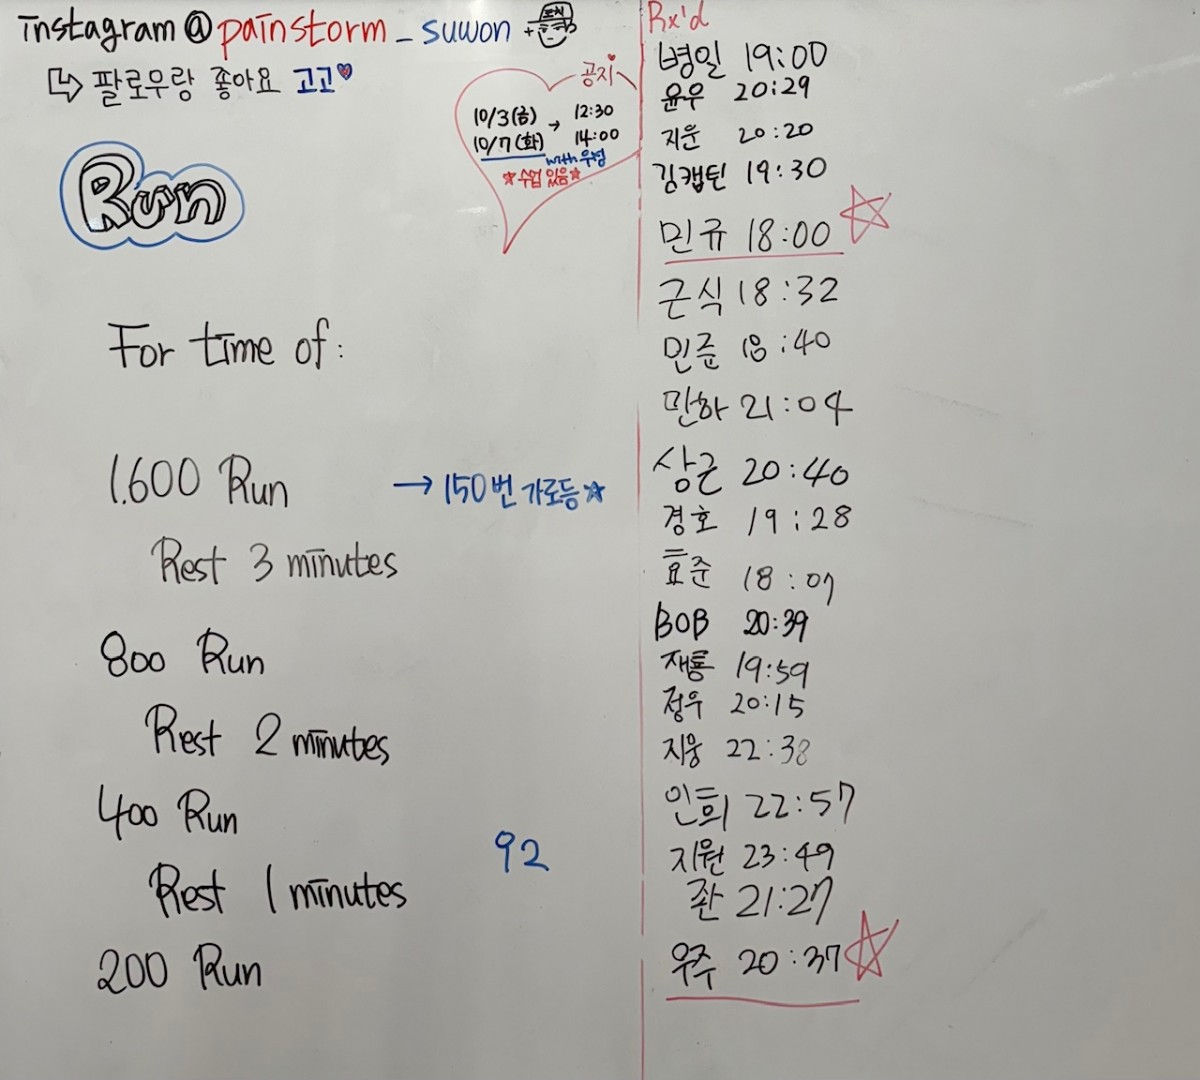 instagram@painstorm_suwon +
팔로우랑 좋아요 고고
공지
10/3(금) → 12:30
10/7(화) 14:00
with 우성
☆수업 있음☆
Run
For time of:
1.600 Run → 150번 가로등☆
Rest 3 minutes
800 Run
Rest 2 minutes
400 Run
Rest 1 minutes
200 Run
92
Rx'd
병일 19:00
윤우 20:29
지운 20:20
김캡틴 19:30
민규 18:00
근식 18:32
민준 18:40
민하 21:04
상근 20:40
경호 19:28
효준 18:07
BOB 20:39
재룡 19:59
정우 20:15
지웅 22:38
인희 22:57
지원 23:49
좐 21:27
우주 20:37